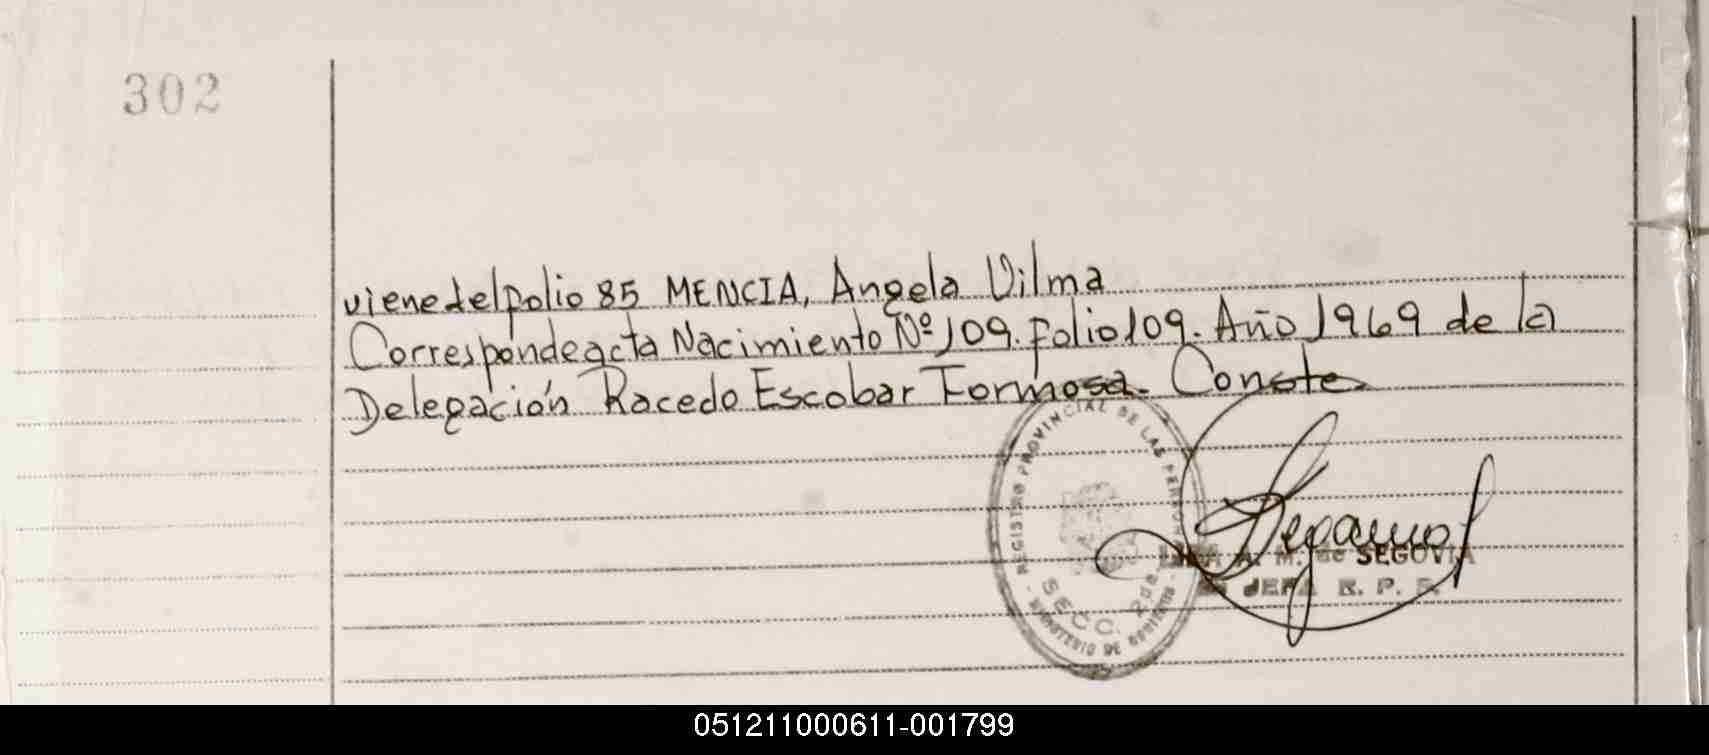 302
viene del folio 85 MENCIA, Angela Vilma
Corresponde acta Nacimiento Nº 109. folio 109. Año 1969 de la
Delegación Racedo Escobar Formosa. Conste
REGISTRO PROVINCIAL DE LAS PER
SECC. 2da.
MINISTERIO DE GOBIERNO
A. M. de SEGOVIA
JEFA R. P. P.
051211000611-001799